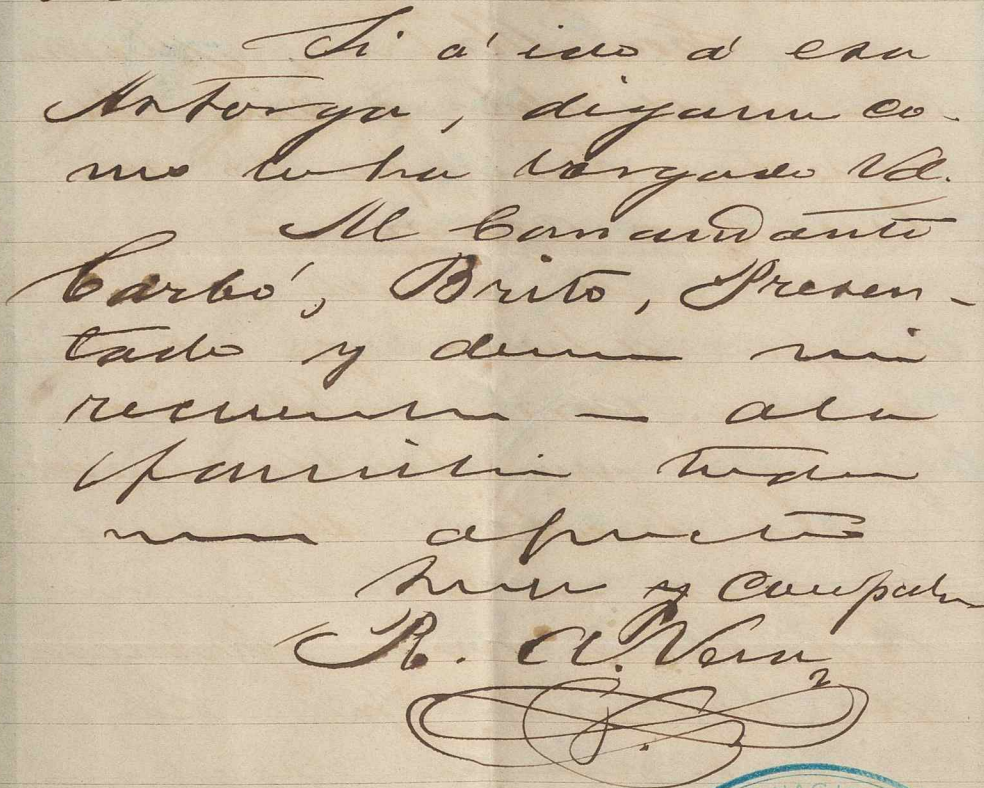 Si á ido á esa
Astorga, digame co-
mo lo ha
Vd.
Al Comandante
Carbó, Brito, Presen-
tado y demas mis
recuerdos — a la
familia toda
mis afectos
y Compadre
R. A. Vera